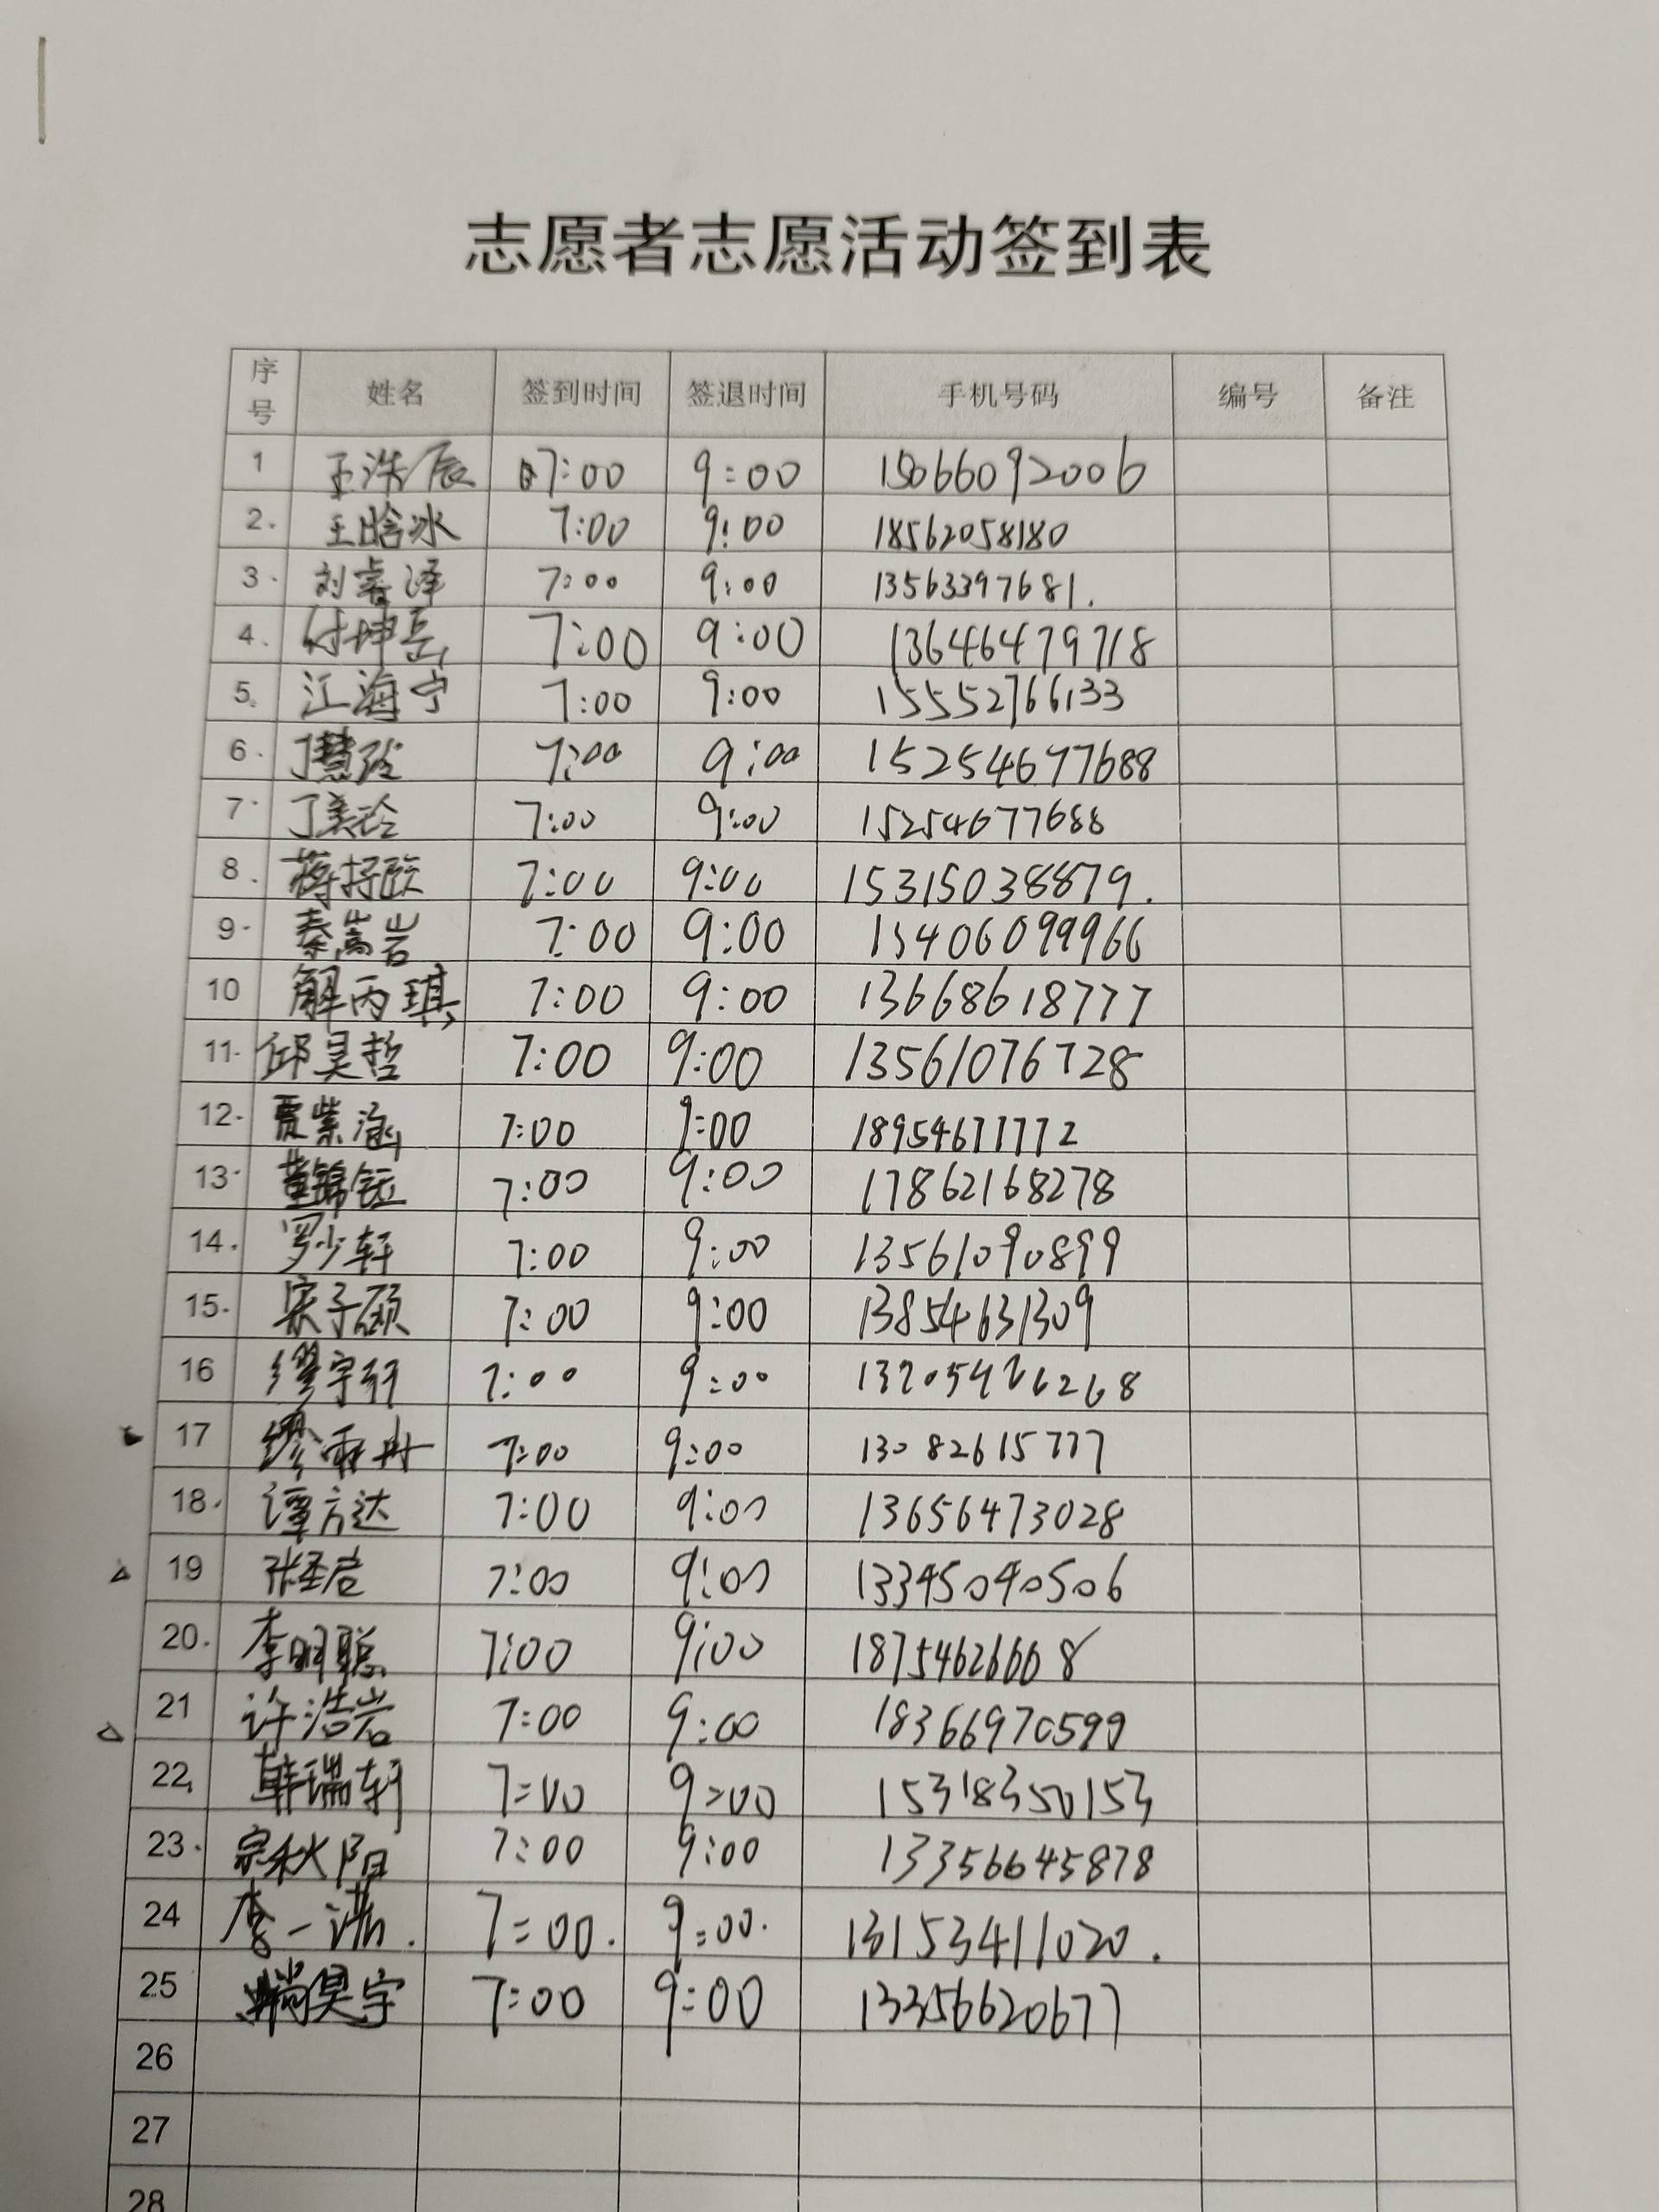 志愿者志愿活动签到表
序号 姓名 签到时间 签退时间 手机号码 编号 备注
1 王浩辰 07:00 9:00 15066092006
2. 王晗冰 7:00 9:00 18562058180
3. 刘睿泽 7:00 9:00 13563397681.
4. 付坤岳 7:00 9:00 13646479718
5. 江海宁 7:00 9:00 15552766133
6. 丁慧玲 7:00 9:00 15254677688
7. 丁美玲 7:00 9:00 15254677688
8. 7:00 9:00 15315038879.
9. 秦嵩岩 7:00 9:00 15406099966
10 解丙琪 7:00 9:00 13668618777
11. 邱昊哲 7:00 9:00 13561076728
12. 贾紫涵 7:00 9:00 18954677772
13. 7:00 9:00 17862168278
14. 罗少轩 7:00 9:00 13561090899
15. 宋子硕 7:00 9:00 13854631309
16 缪宇轩 7:00 9:00
17 缪雨冉 7:00 9:00 13082615777
18. 谭方达 7:00 9:00 13656473028
19 张圣启 7:00 9:00 13345090506
20. 李明聪 7:00 9:00 18754626668
21 许浩岩 7:00 9:00 18366970599
22. 韩瑞轩 7:00 9:00 15318350153
23. 宗秋阳 7:00 9:00 13356645878
24 李一诺. 7:00. 9:00. 13153411020.
25 尚昊宇 7:00 9:00 13356620677
26
27
28